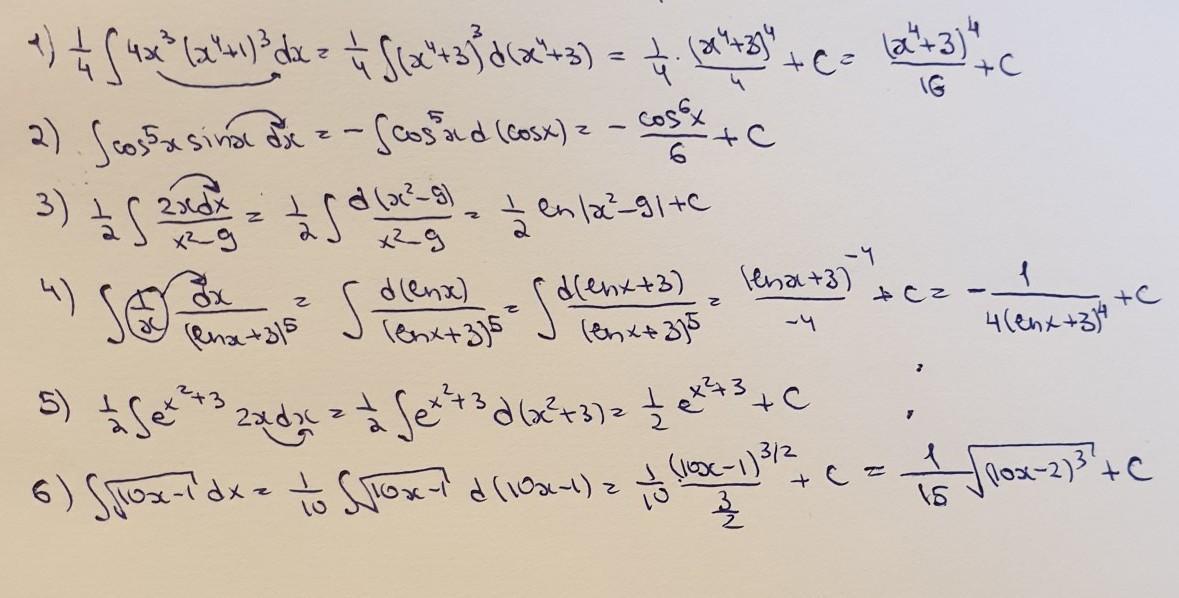 1) 1/4 ∫ 4x³ (x⁴+1)³ dx = 1/4 ∫(x⁴+3)³ d(x⁴+3) = 1/4 · (x⁴+3)⁴/4 + C = (x⁴+3)⁴/16 + C
2) ∫cos⁵x sinx dx = - ∫cos⁵x d(cosx) = - cos⁶x/6 + C
3) 1/2 ∫ 2xdx/(x²-9) = 1/2 ∫ d(x²-9)/(x²-9) = 1/2 ln|x²-9|+C
4) ∫ (1/x) dx/(lnx+3)⁵ = ∫ d(lnx)/(lnx+3)⁵ = ∫ d(lnx+3)/(lnx+3)⁵ = (lnx+3)⁻⁴/-4 + C = - 1/(4(lnx+3)⁴) + C
5) 1/2 ∫e^(x²+3) 2xdx = 1/2 ∫e^(x²+3) d(x²+3) = 1/2 e^(x²+3) + C
6) ∫√(10x-1) dx = 1/10 ∫√(10x-1) d(10x-1) = 1/10 (10x-1)^(3/2)/(3/2) + C = 1/15 √((10x-2)³) + C